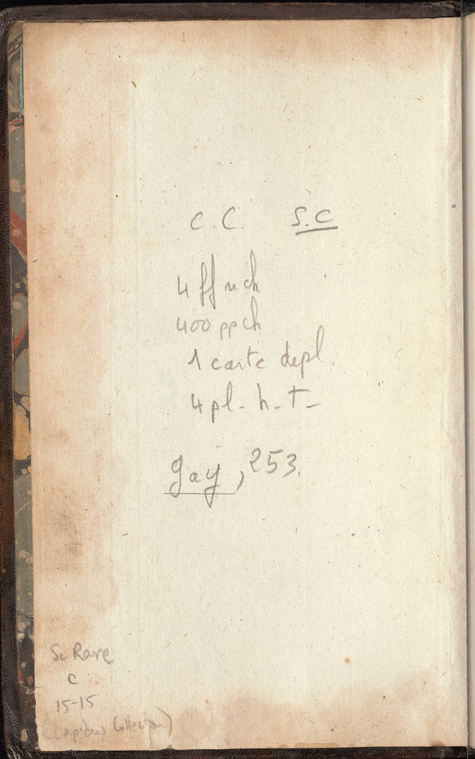 C.C. S.C
4 ff nch
400 pp ch
1 carte depl.
4 pl. h.T.
Gay, 253.
Sc Rare
C
15-15
Collection)